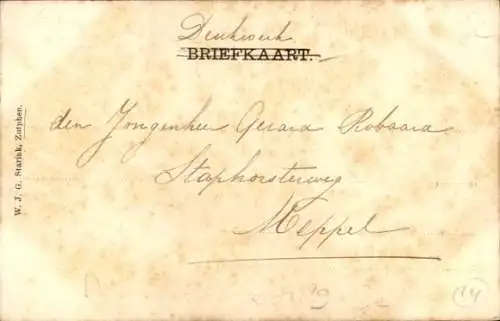 Drukwerk
BRIEFKAART.
den Jongenheer Gerard Robaard
Staphorsterweg
Meppel
W. J. G. Starink, Zutphen.